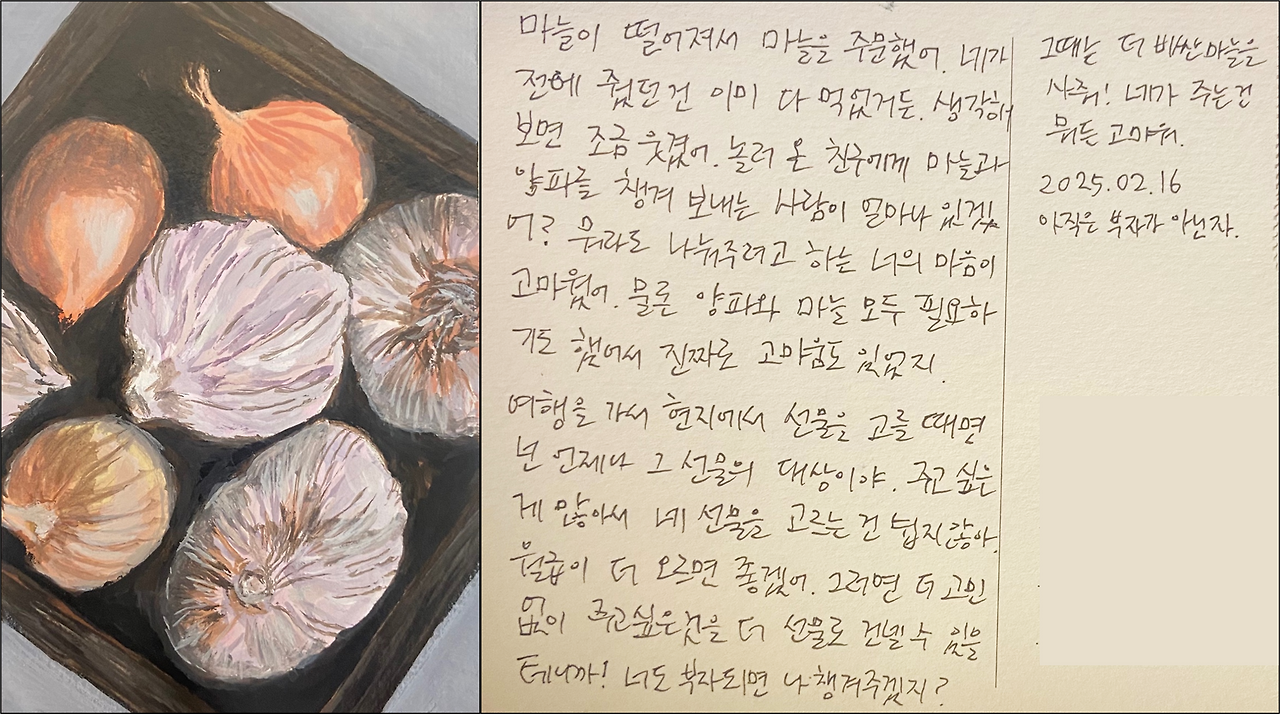 마늘이 떨어져서 마늘을 주문했어. 네가
전에 줬던 건 이미 다 먹었거든. 생각해
보면 조금 웃겼어. 놀러 온 친구에게 마늘과
양파를 챙겨 보내는 사람이 얼마나 있겠
어? 뭐라도 나눠주려고 하는 너의 마음이
고마웠어. 물론 양파와 마늘 모두 필요하
기도 했어서 진짜로 고마움도 있었지.
여행을 가서 현지에서 선물을 고를 때면
넌 언제나 그 선물의 대상이야. 주고 싶은
게 많아서 네 선물을 고르는 건 쉽지 않아.
월급이 더 오르면 좋겠어. 그러면 더 고민
없이 주고 싶은 것을 더 선물로 건넬 수 있을
테니까! 너도 부자되면 나 챙겨주겠지?
그때는 더 비싼 마늘을
사줘! 네가 주는 건
뭐든 고마워.
2025.02.16
아직은 부자가 아닌 자.